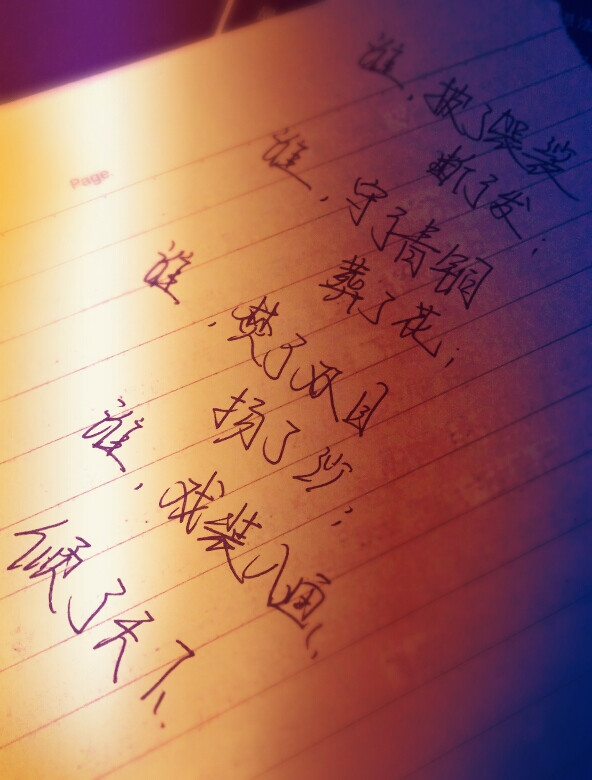 Page
谁，披了袈裟
断了发；
谁，守了青铜
葬了花；
谁，焚了双目
扬了沙；
谁，戏装入画、
倾了天下、